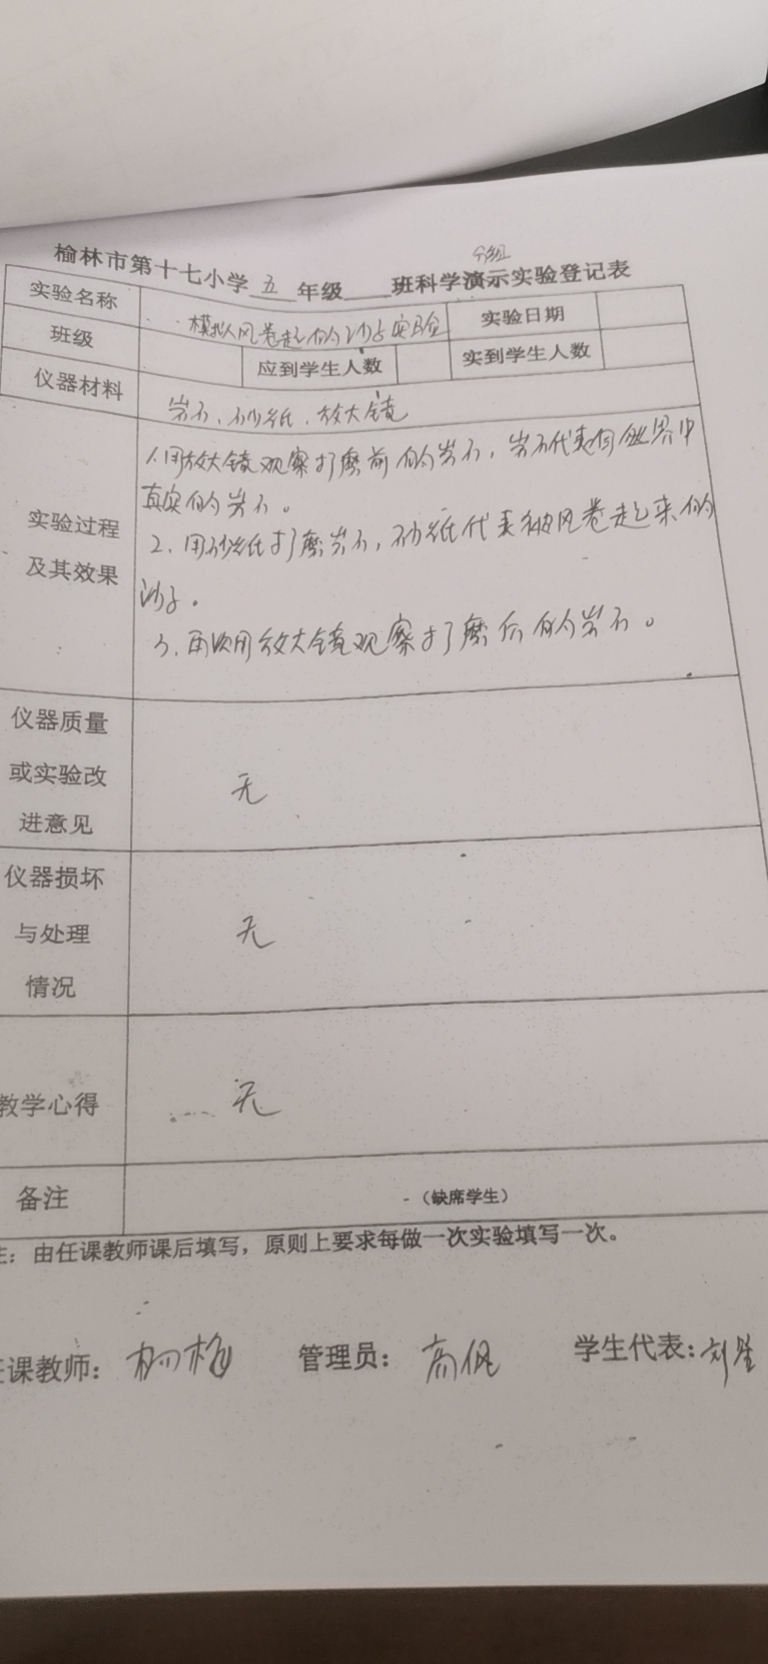 分组
榆林市第十七小学 五 年级 班科学演示实验登记表
实验名称 模拟风卷起的沙子实验 实验日期
班级 应到学生人数 实到学生人数
仪器材料 岩石、砂纸、放大镜
实验过程
及其效果
1.用放大镜观察打磨前的岩石,岩石代表自然界中
真实的岩石。
2.用砂纸打磨岩石,砂纸代表被风卷起来的
沙子。
3.再次用放大镜观察打磨后的岩石。
仪器质量
或实验改
进意见
无
仪器损坏
与处理
情况
无
教学心得 无
备注 (缺席学生)
注:由任课教师课后填写,原则上要求每做一次实验填写一次。
任课教师:杨梅 管理员:高佩 学生代表:刘星